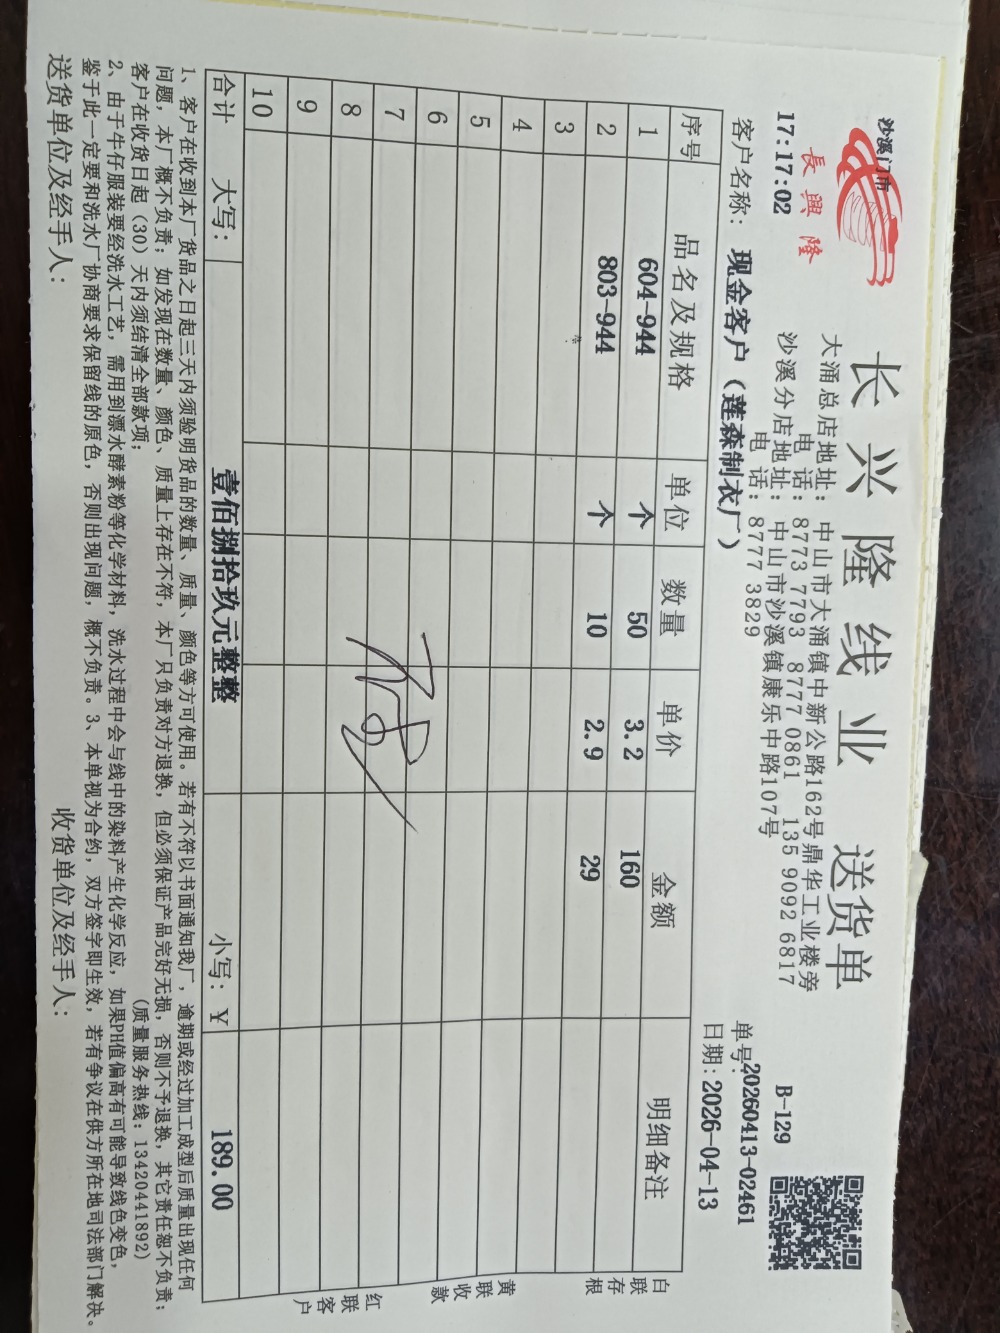 沙溪门市
長興隆
17:17:02
长兴隆线业 送货单
大涌总店地址: 中山市大涌镇中新公路162号鼎华工业楼旁
电 话: 8773 7793 8777 0861 135 9092 6817
沙溪分店地址: 中山市沙溪镇康乐中路107号
电 话: 8777 3829
B-129
单号:20260413-02461
客户名称: 现金客户(莲森制衣厂)
日期: 2026-04-13
序号 品名及规格 单位 数量 单价 金额 明细备注
1 604-944 个 50 3.2 160
2 803-944 个 10 2.9 29
3
4
5
6
7
8
9
10
合计 大写: 壹佰捌拾玖元整整 小写: ¥ 189.00
白联存根
黄联收款
红联客户
1、客户在收到本厂货品之日起三天内须验明货品的数量、质量、颜色等方可使用。若有不符以书面通知我厂,逾期或经过加工成型后质量出现任何
问题,本厂概不负责;如发现在数量、颜色、质量上存在不符,本厂只负责对方退换,但必须保证产品完好无损,否则不予退换,其它责任恕不负责;
客户在收货日起(30)天内须结清全部款项; (质量服务热线: 13420441892)
2、由于牛仔服装要经洗水工艺,需用到漂水酵素粉等化学材料,洗水过程中会与线中的染料产生化学反应,如果PH值偏高有可能导致线色变色,
鉴于此一定要和洗水厂协商要求保留线的原色,否则出现问题,概不负责。3、本单视为合约,双方签字即生效,若有争议在供方所在地司法部门解决。
送货单位及经手人: 收货单位及经手人: